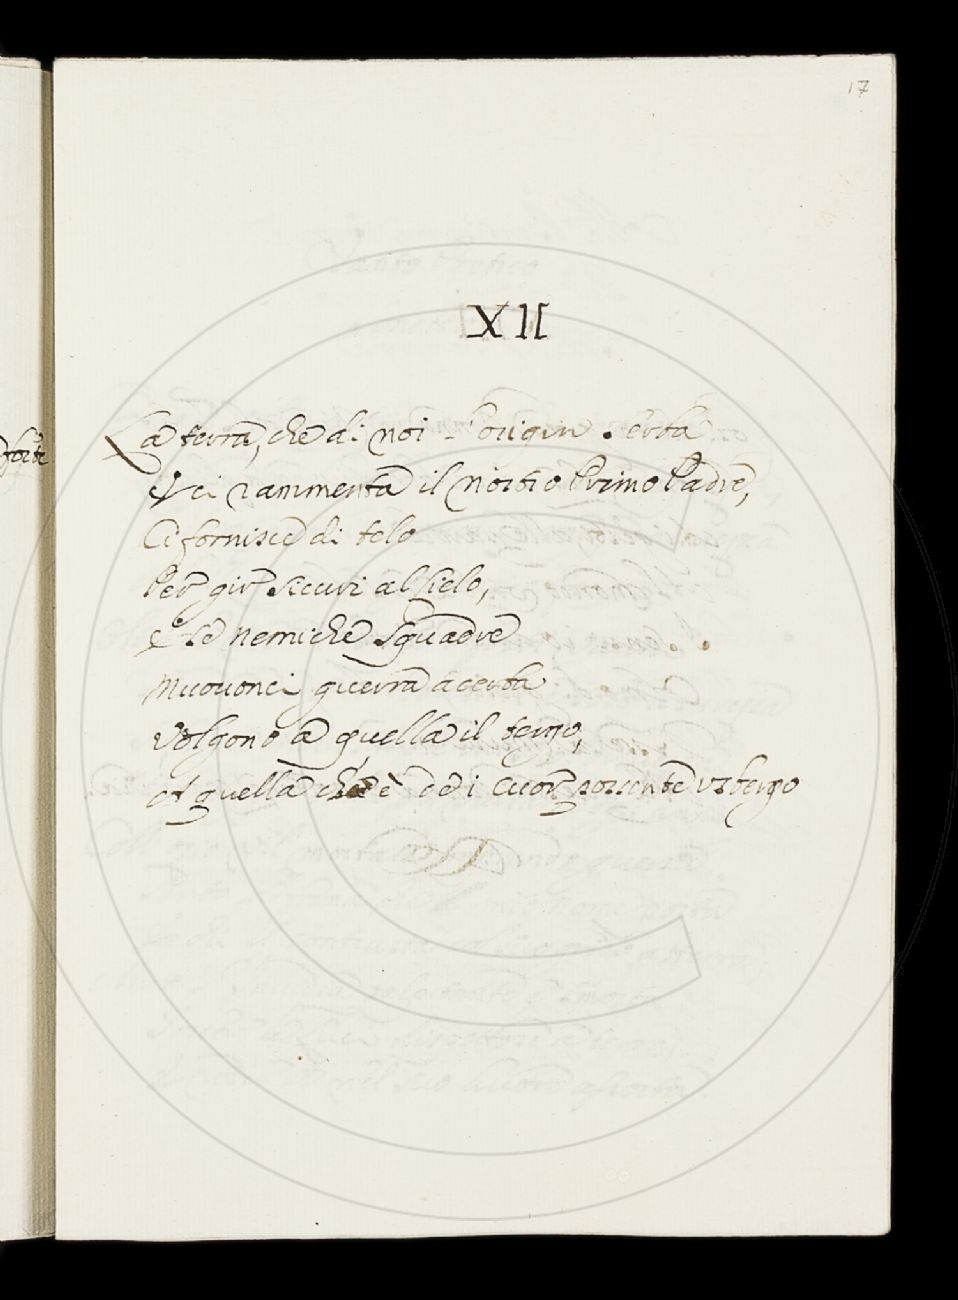 17
XII
forte
La terra, che di noi l'origin serba
E ci rammenta il nostro Primo Padre,
Ci fornisce di telo
Per gir sicuri al Cielo,
E se nemiche squadre
Muovonci guerra acerba
Volgono a quella il tergo,
A quella ch'è dei cuor possente usbergo